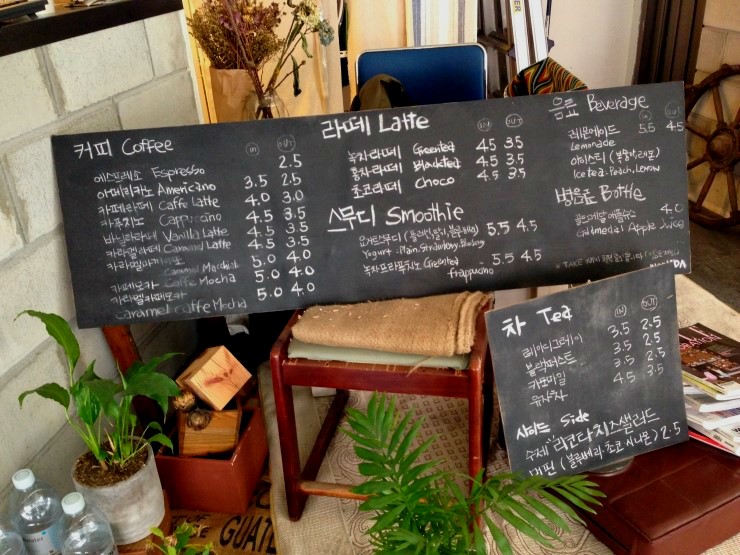 커피 Coffee
IN OUT
에스프레소 Espresso 2.5
아메리카노 Americano 3.5 2.5
카페라떼 Caffe Latte 4.0 3.0
카푸치노 Cappuccino 4.5 3.5
바닐라라떼 Vanilla Latte 4.5 3.5
카라멜라떼 Caramel Latte 4.5 3.5
카라멜마끼아또 Caramel 5.0 4.0
카페모카 Caffe Mocha 5.0 4.0
카라멜카페모카 5.0 4.0
caramel caffe Mocha
라떼 Latte
IN OUT
녹차라떼 Greentea 4.5 3.5
홍차라떼 Blacktea 4.5 3.5
초코라떼 Choco 4.5 3.5
스무디 Smoothie
요거트스무디 5.5 4.5
Yogurt : Plain. Strawberry.
녹차프라푸치노 Greentea 5.5 4.5
frappucino
음료 Beverage
IN OUT
레몬에이드 5.5 4.5
Lemonade
아이스티 (복숭아,레몬)
Ice tea : Peach, Lemon
병음료 Bottle
골드메달 애플주스 4.0
Goldmedal Apple Juice
* TAKE
차 Tea
IN OUT
레이디그레이 3.5 2.5
블랙퍼스트 3.5 2.5
카모마일 3.5 2.5
유자차 4.5 3.5
사이드 Side
수제 리코타치즈샐러드
머핀 (블루베리.초코.시나몬) 2.5
GUATE